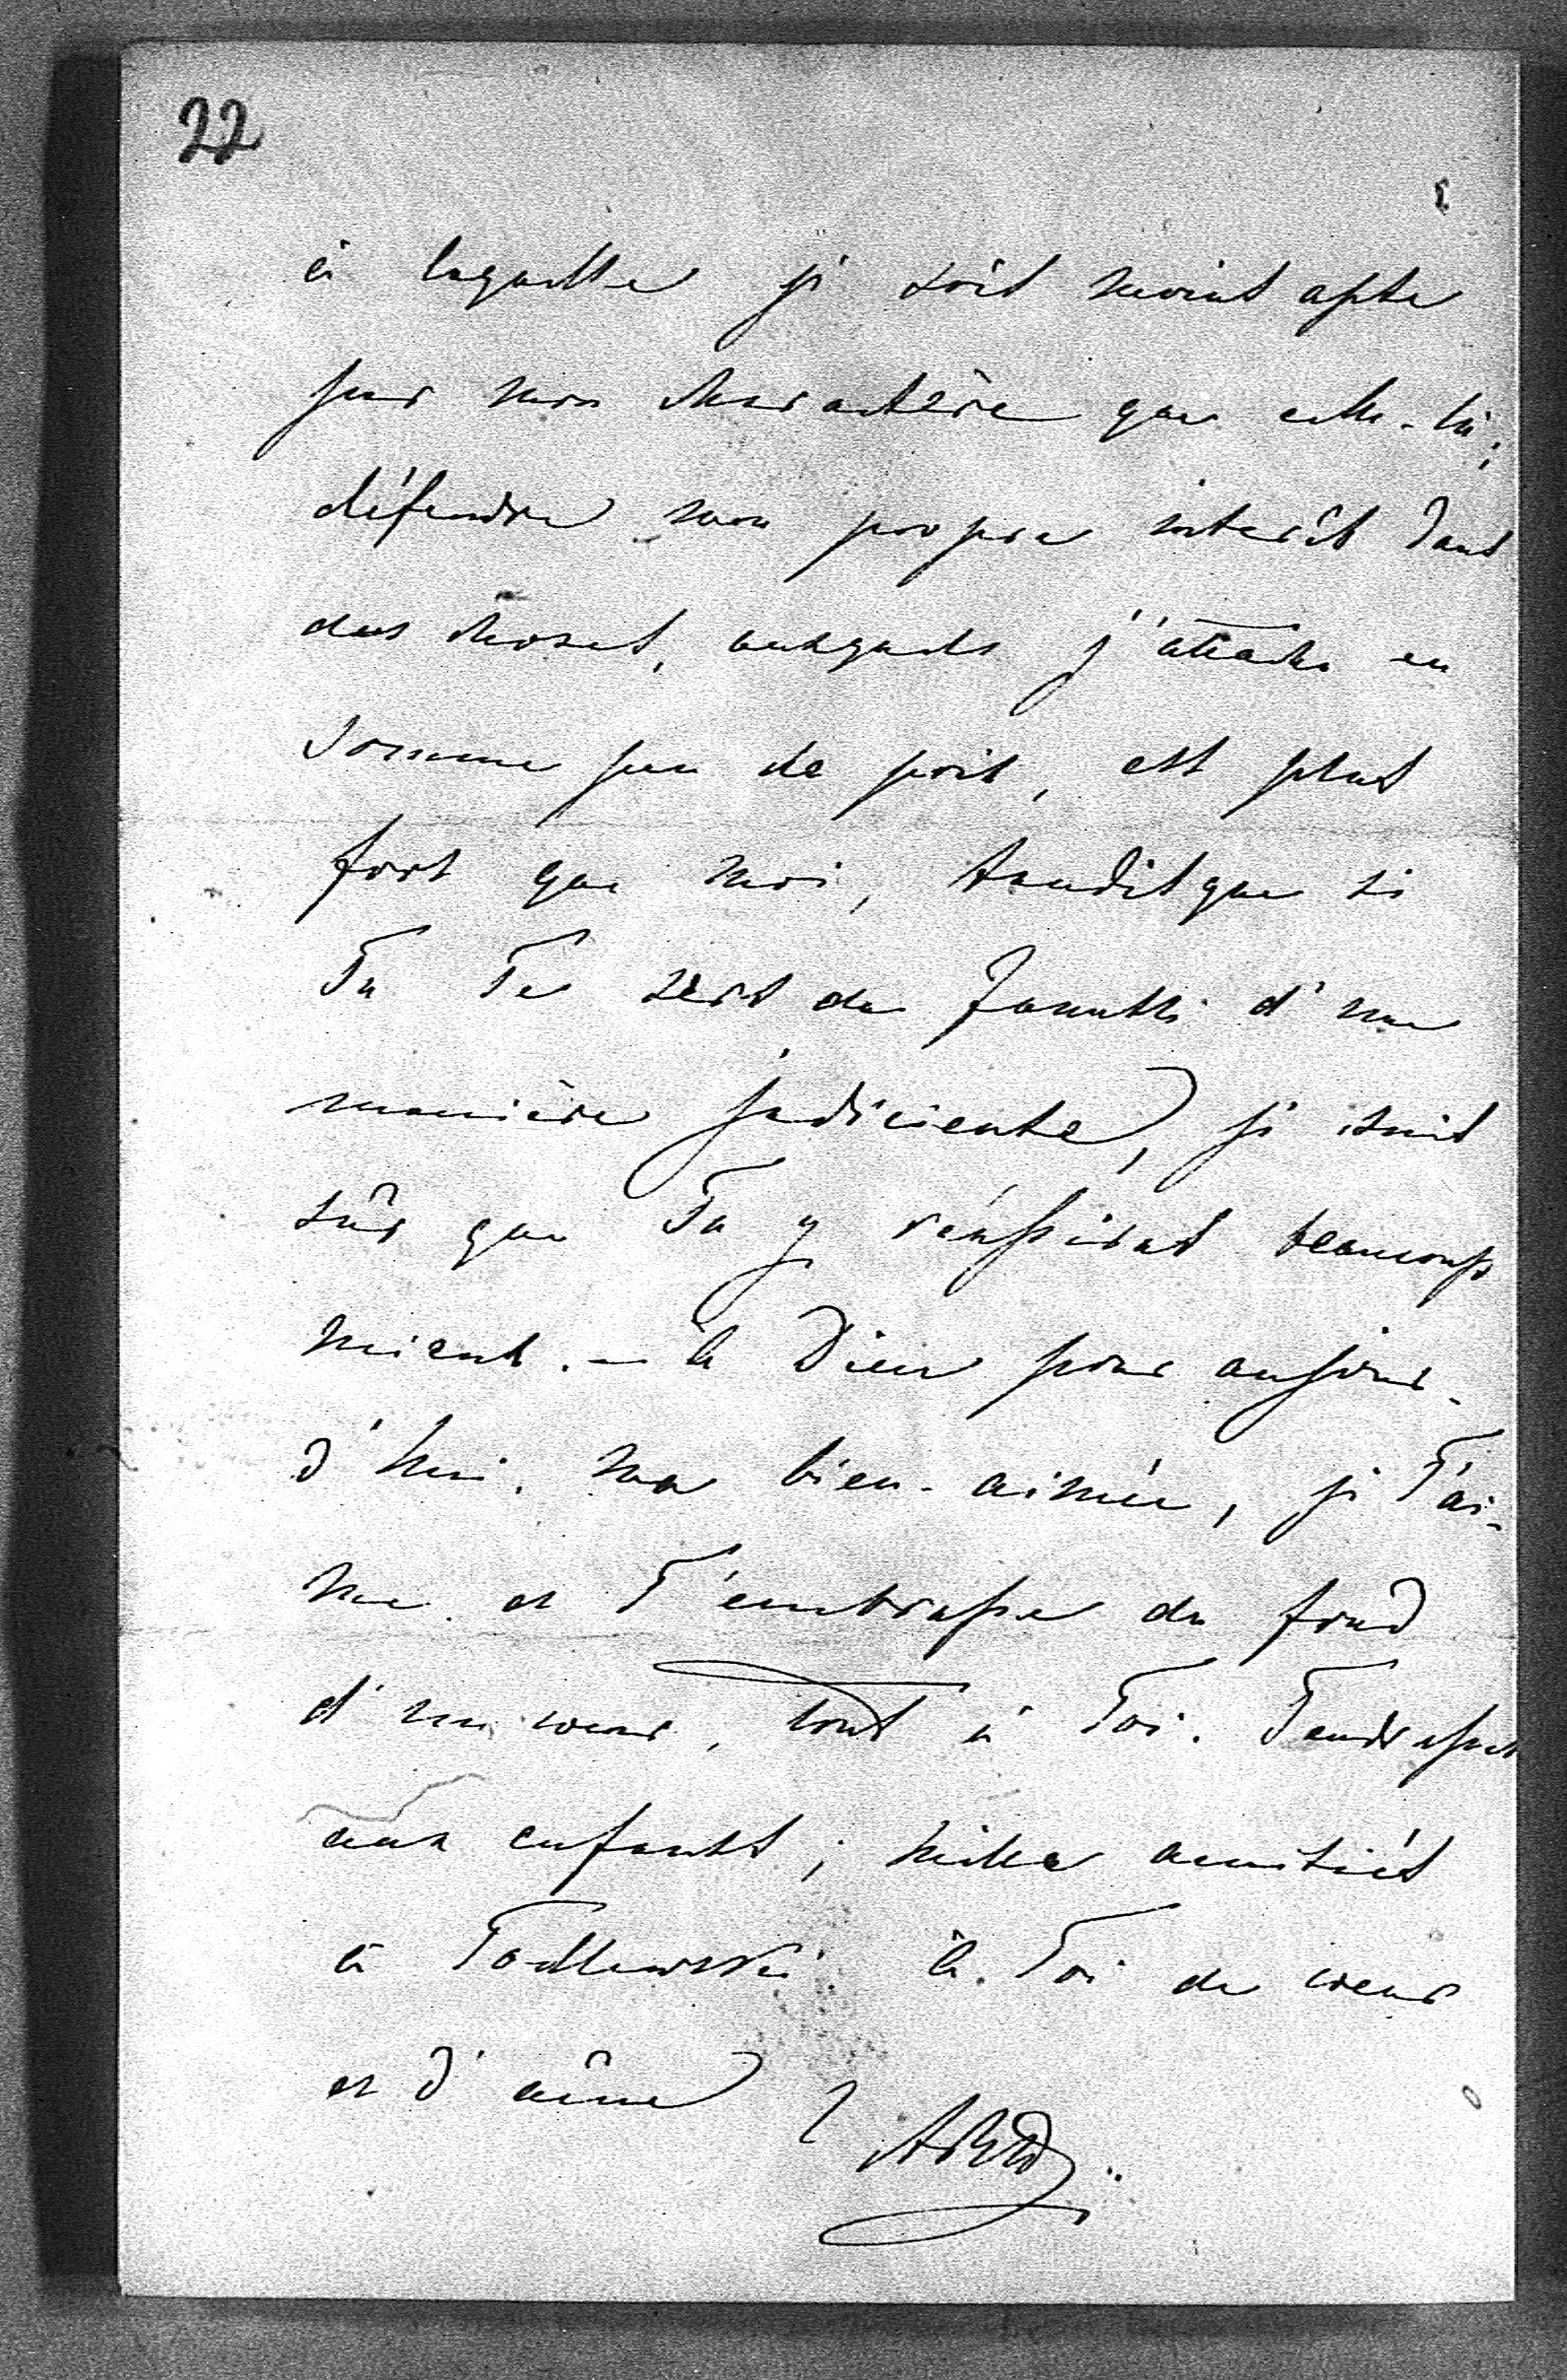 22
à laquelle je sois moins apte
par mon charactère que celle-là;
défendre mon propre intérêt dans
des choses, auxquels j'attache en
somme peu de pois, est plus
fort que moi, tandisque si
Tu Te sers de Janulli d'une
manière judicieuse, je suis
sûr que Tu y réussiras beaucoup
mieux. — à Dieu pour aujour-
d'hui, ma bien-aimée, je T'ai-
me et T'embrasse du fond
d'un coeur, tout à Toi. Tendresses
aux enfants; mille amitiés
à à Toi de coeur
et d'âme